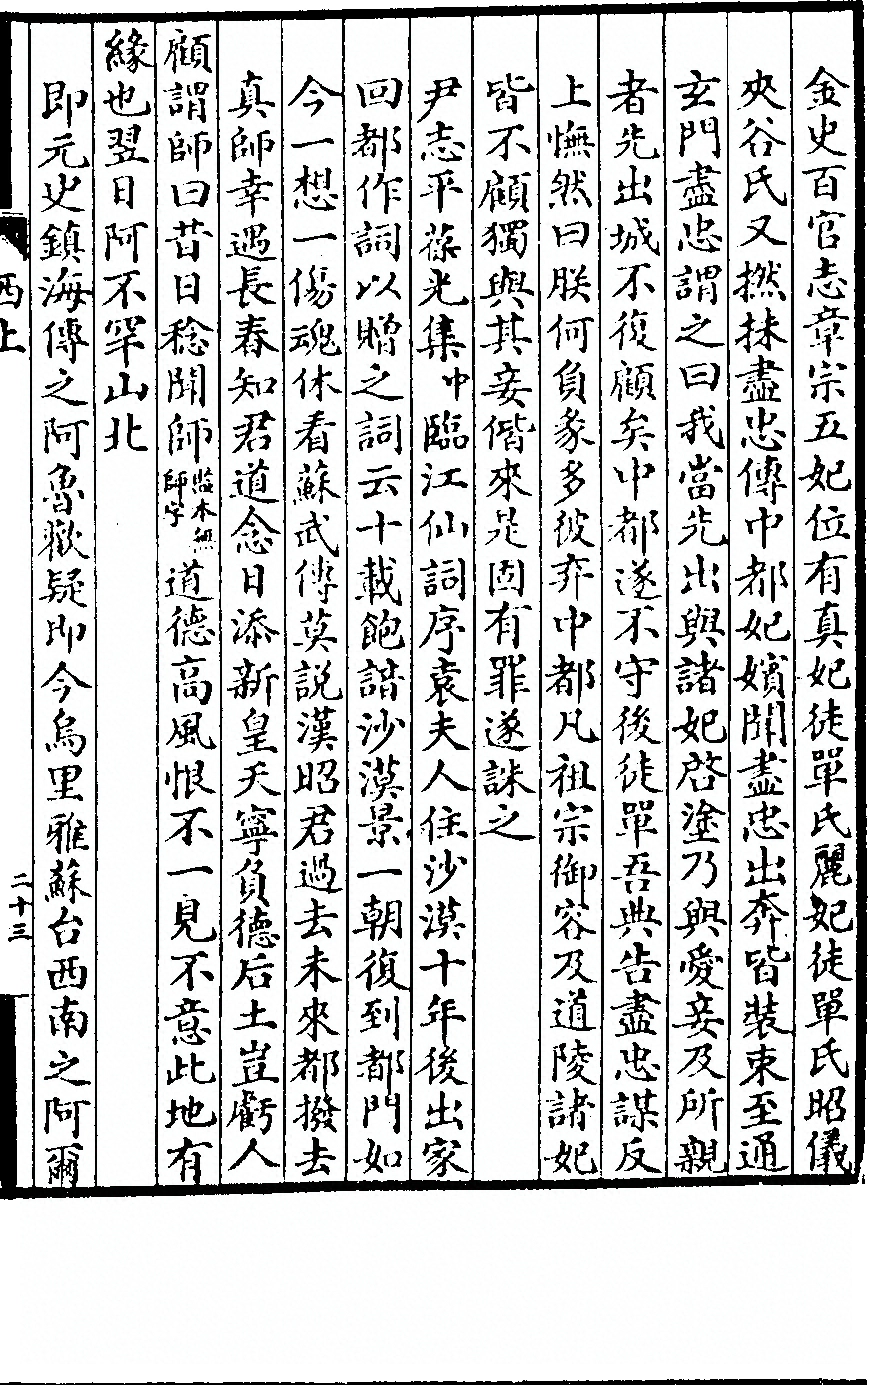 金史百官志章宗五妃位有真妃徒單氏麗妃徒單氏昭儀
夾谷氏又撚抹盡忠傳中都妃嬪聞盡忠出奔皆裝束至通
玄門盡忠謂之曰我當先出與諸妃啓塗乃與愛妾及所親
者先出城不復顧矣中都遂不守後徒單吾典告盡忠謀反
上憮然曰朕何負彖多彼弃中都凡祖宗御容及道陵諸妃
皆不顧獨與其妾偕來是固有罪遂誅之
尹志平葆光集中臨江仙詞序袁夫人住沙漠十年後出家
回都作詞以贈之詞云十載飽諳沙漠景一朝復到都門如
今一想一傷魂休看蘇武傳莫說漢昭君過去未來都撥去
真師幸遇長春知君道念日添新皇天寧負德后土豈虧人
顧謂師曰昔日稔聞師監本無師字道德高風恨不一見不意此地有
緣也翌日阿不罕山北
即元史鎮海傳之阿魯歡疑即今烏里雅蘇台西南之阿爾
西上
二十三